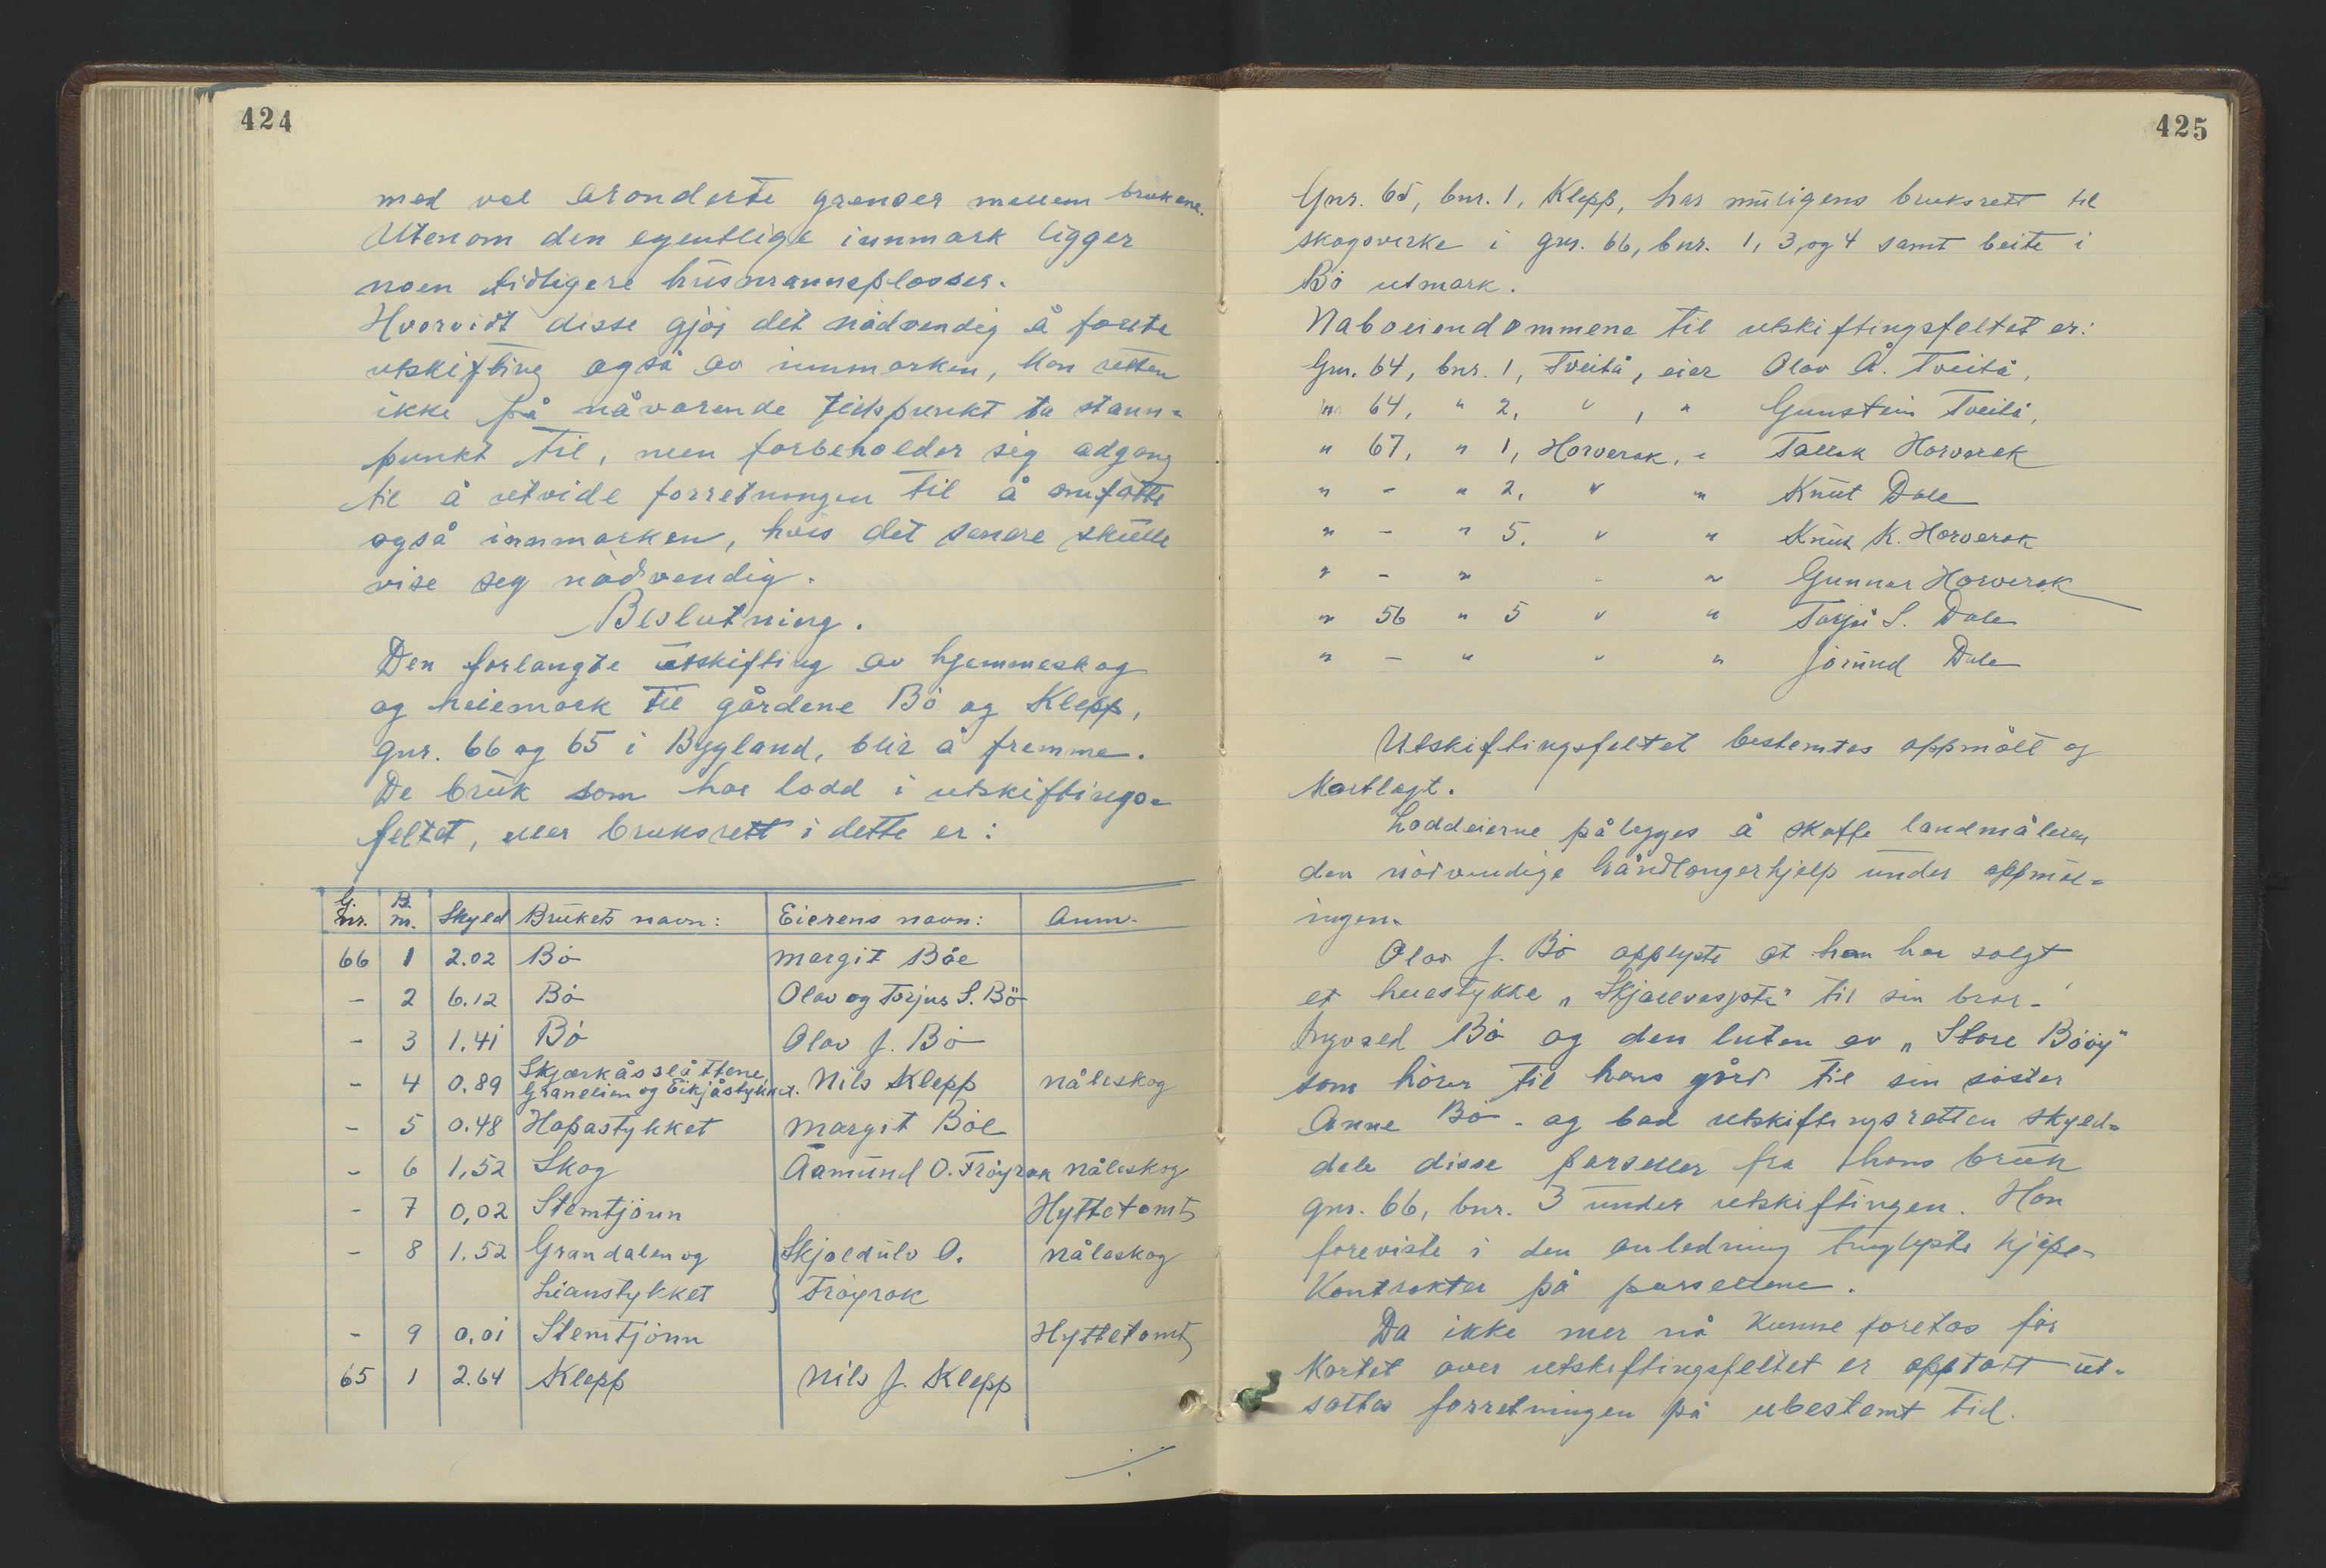 424
med vel aronderte grenser mellem brukene.
Utenom den egentlige innmark ligger
noen tidligere husmannsplasser.
Hvorvidt disse gjør det nødvendig å foreta
utskifting også av innmarken, kan retten
ikke på nåværende tidspunkt ta stann=
punkt til, men forbeholder sig adgang
til å utvide forretningen til å omfatte
også innmarken, hvis det senere skulle
vise seg nødvendig.
Beslutning.
Den forlangte utskifting av hjemmeskog
og heiemark til gårdene Bö og Klepp,
gnr. 66 og 65 i Bygland, blir å fremme.
De bruk som har lodd i utskiftings=
feltet, eller bruksrett i dette er:
G. nr. B. nr. Skyld Brukets navn: Eierens navn: Anm.
66 1 2.02 Bö Margit Böe
- 2 6.12 Bö Olav og Torjus S. Bö
- 3 1.41 Bö Olav J. Bö
- 4 0.89 Skjerkåsslåttene, Granelien og Eikjåstykket. Nils Klepp nåleskog
- 5 0.48 Hapastykket Margit Böe
- 6 1,52 Skog Åamund O. Fröyrak nåleskog
- 7 0,02 Stemtjönn Hyttetomt
- 8 1.52 Grandalen og Skjoldulv O. nåleskog
Lianstykket Fröyrak
- 9 0.01 Stemtjönn Hyttetomt
65 1 2.64 Klepp Nils J. Klepp
./.
425
Gnr. 65, bnr. 1, Klepp, har muligens bruksrett til
skogsvirke i gnr. 66, bnr. 1, 3, og 4 samt beite i
Bö utmark.
Naboeiendommene til utskiftingsfeltet er:
Gnr. 64, bnr. 1, Tveitå, eier Olav Å. Tveitå,
" 64, " 2, " , " Gunstein Tveitå,
" 67, " 1, Horverak, " Tallak Horverak
" - " 2, " " Knut Dale
" - " 5, " " Knut K. Horverak
" - " " " Gunnar Horverak
" 56 " 5 " " Torjus S. Dale
" - " " " Jörund Dale
Utskiftingsfeltet bestemtes oppmålt og
kartlagt.
Loddeierne pålegges å skaffe landmåleren
den nödvendige håndlangerhjelp under oppmål=
ingen.
Olav J. Bö opplyste at han har solgt
et heiestykke til sin bror -
Bö og den luten av "Store Bööy"
som hörer til hans gård til sin söster
Anne Bö - og bad utskiftingsretten skyld=
dele disse parseller fra hans bruk
gnr. 66, bnr. 3 under utskiftingen. Han
foreviste i den anledning tinglyste kjöpe-
kontrakter på parsellene.
Da ikke mer nå kunne foretas för
kartet over utskiftingsfeltet er opptatt ut=
sattes forretningen på ubestemt tid.